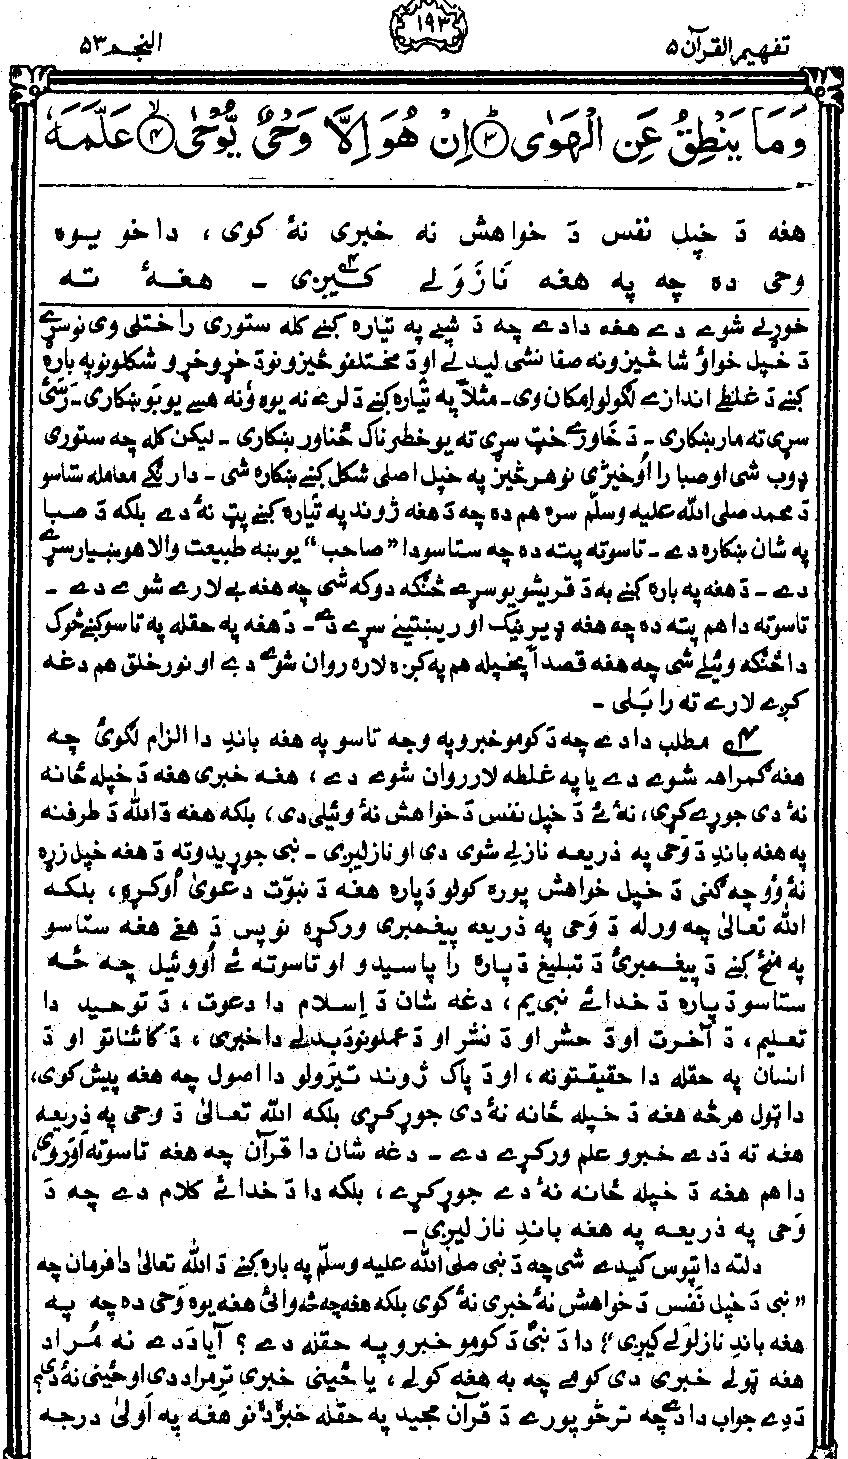 تفهیم القرآن ۵
۱۹۳
النجم ۵۳
وَمَا يَنْطِقُ عَنِ الْهَوٰى ۳ اِنْ هُوَ اِلَّا وَحْىٌ يُّوْحٰى ۴ عَلَّمَهٗ
هغه دَ خپل نفس دَ خواهش نه خبرى نۀ کوى، دا خو يوه
وحى ده چه په هغه نَازَوَلے کيږى - هغۀ ته
خورلے شوے دے هغه دادے چه دَ شپے په تياره کښے کله ستورى راختلى وى نو سړے
دَ خپل خواؤ شا څيزونه صفا نشى ليدلے او دَ مختلفو څيزونو دَ خړو خړو شکلونو په باره
کښے دَ غلطے اندازے لګولو امکان وى - مثلاً په تياره کښے دَ لرے نه يوه وُنه هسے يو بو ښکارى - رسَئ
سړى ته مار ښکارى - دَ خاورے خټه سړى ته يو خطرناک ځناور ښکارى - ليکن کله چه ستورى
ډوب شى او صبا را اُوخيژى نو هر څيز په خپل اصلى شکل کښے ښکاره شى - دا رنګے معامله ستاسو
دَ محمد صلى الله عليه وسلّم سره هم ده چه دَ هغه ژوند په تياره کښے پټ نۀ دے بلکه دَ صبا
په شان ښکاره دے - تاسو ته پته ده چه ستاسو دا "صاحب" يو ښه طبيعت والا هوښيار سړے
دے - دَ هغه په باره کښے به دَ قريشو يو سړے څنګه دوکه شى چه هغه بے لارے شوے دے -
تاسو ته دا هم پته ده چه هغه ډير نيک او ريښتينے سړے دے - دَ هغه په حقله په تاسو کښے څوک
دا څنګه وئيلے شى چه هغه قصداً پخپله هم په کږه لاره روان شوے دے او نور خلق هم دغه
کږے لارے ته را بَلى -
۴ے مطلب دادے چه دَ کومو خبرو په وجه تاسو په هغه باندِ دا الزام لګوئ چه
هغه ګمراه شوے دے يا په غلطه لار روان شوے دے، هغه خبرى هغه دَ خپله ځانه
نۀ دى جوړے کړى، نۀ ئے دَ خپل نفس دَ خواهش نۀ وئيلى دى، بلکه هغه دَ الله دَ طرفنه
په هغه باندِ دَ وَحى په ذريعه نازلے شوى دى او نازليږى - نبى جوړيدو ته دَ هغه خپل زړه
نۀ وُو چه ګنى دَ خپل خواهش پوره کولو دَ پاره هغه دَ نبوّت دعوىٰ اُوکړه، بلکه
الله تعالىٰ چه ورله دَ وَحى په ذريعه پيغمبرى ورکړه نو پس دَ هغے هغه ستاسو
په مخ کښے دَ پيغمبرئ دَ تبليغ دَ پاره را پاسيدو او تاسو ته ئے اُووئيل چه زۀ
ستاسو دَ پاره دَ خدائے نبى يم، دغه شان دَ اِسلام دا دعوت، دَ توحيد دا
تعليم، دَ آخرت او دَ حشر او دَ نشر او دَ عملونو دَ بدلے دا خبرى، دَ کائناتو او دَ
انسان په حقله دا حقيقتونه، او دَ پاک ژوند تيرولو دا اصول چه هغه پيش کوى،
دا ټول هرڅه هغه دَ خپله ځانه نۀ دى جوړ کړى بلکه الله تعالىٰ دَ وحى په ذريعه
هغه ته دَ دے خبرو علم ورکړے دے - دغه شان دا قرآن چه هغه تاسو ته اوروى،
دا هم هغه دَ خپله ځانه نۀ دے جوړ کړے، بلکه دا دَ خدائے کلام دے چه دَ
وَحى په ذريعه په هغه باندِ نازليږى -
دلته دا تپوس کيدے شى چه دَ نبى صلى الله عليه وسلّم په باره کښے دَ الله تعالىٰ دا فرمان چه
"نبى دَ خپل نَفس دَ خواهش نۀ خبرى نۀ کوى بلکه هغه چه څۀ وائى هغه يوه وَحى ده چه په
هغه باندِ نازلولے کيږى"، دا دَ نبى دَ کومو خبرو په حقله دے؟ آيا دَ دے نه مُراد
هغه ټولے خبرى دى کومے چه به هغه کولے، يا ځينى خبرى ترِ مراد دى او ځينى نۀ دى؟
دَ دے جواب دادے چه ترڅو پورے دَ قرآن مجيد په حقله خبره ده نو هغه په اَولىٰ درجه